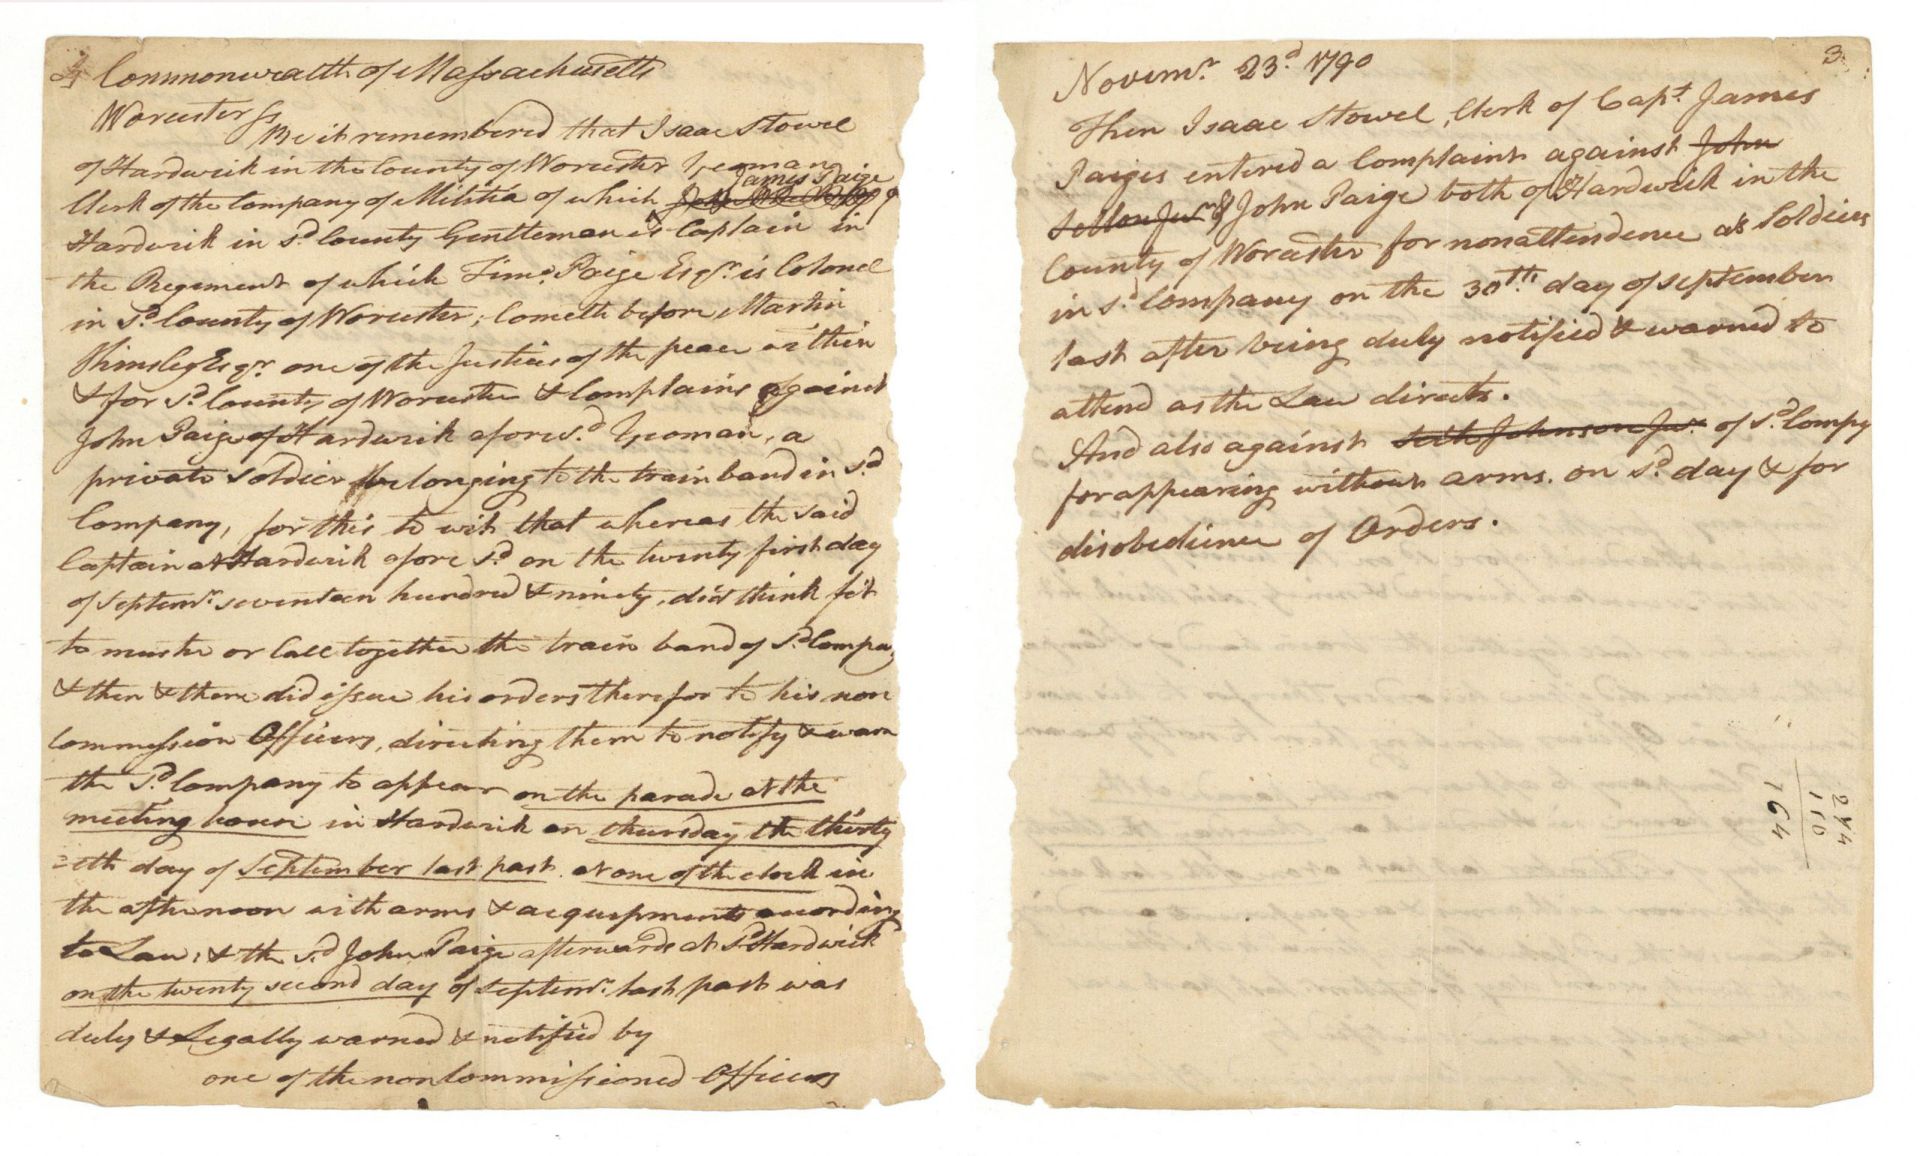 Commonwealth of Massachusetts
Worcester ss
Be it remembered that Isaac Stowel
of Hardwick in the County of Worcester Yeoman
James Paige
Clerk of the Company of Militia of which of
Hardwick in sd. County Gentleman is Captain in
the Regiment of which Timo. Paige Esqr. is Colonel
in sd. County of Worcester; Cometh before Martin
Kinsley Esqr. one of the Justices of the peace within
& for sd. County of Worcester & Complains against
John Paige of Hardwick afore sd. Yeoman, a
private soldier belonging to the train band in sd.
Company, for this to wit that whereas the said
Captain at Hardwick afore sd. on the twenty first day
of Septemr. seventeen hundred & ninety, did think fit
to muster or Call together the train band of sd. Compay
& then & there did issue his orders therefor to his non
Commission Officers, directing them to notify & warn
the sd. Company to appear on the parade at the
meeting house in Hardwick on thursday the thirty
=eth day of September last past at one of the clock in
the afternoon with arms & acquipments according
to Law; & the sd. John Paige afterwards at sd. Hardwick
on the twenty second day of Septemr. last past was
duly & Legally warned & notified by
one of the non Commissioned Officers
3
Novemr. 23d. 1790
Then Isaac Stowel, Clerk of Capt. James
Paiges entered a Complaint against John
Jur. & John Paige both of Hardwick in the
County of Worcester for nonattendence as Soldiers
in sd. Company on the 30th. day of September
last after being duly notified & warned to
attend as the Law directs.
And also against Seth Johnson Jur. of sd. Compy
for appearing without arms. on sd. day & for
disobedience of Orders.
244
164